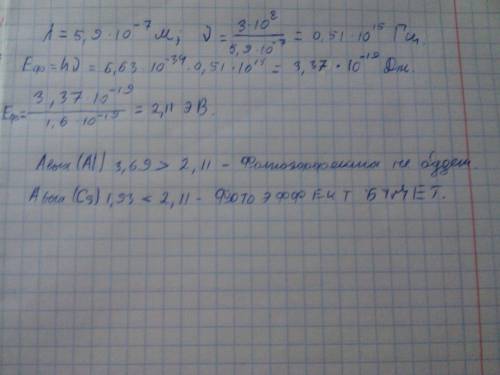 λ = 5,9 · 10⁻⁷ м; ν = 3·10⁸ / 5,9·10⁻⁷ = 0,51 · 10¹⁵ Гц.
Eф = hν = 6,63 · 10⁻³⁴ · 0,51 · 10¹⁵ = 3,37 · 10⁻¹⁹ Дж.
Eф = 3,37·10⁻¹⁹ / 1,6·10⁻¹⁹ = 2,11 ЭВ.
Aвых (Al) 3,69 > 2,11 - Фотоэффекта не будет.
Aвых (Cs) 1,93 < 2,11 - ФОТОЭФФЕКТ БУДЕТ.